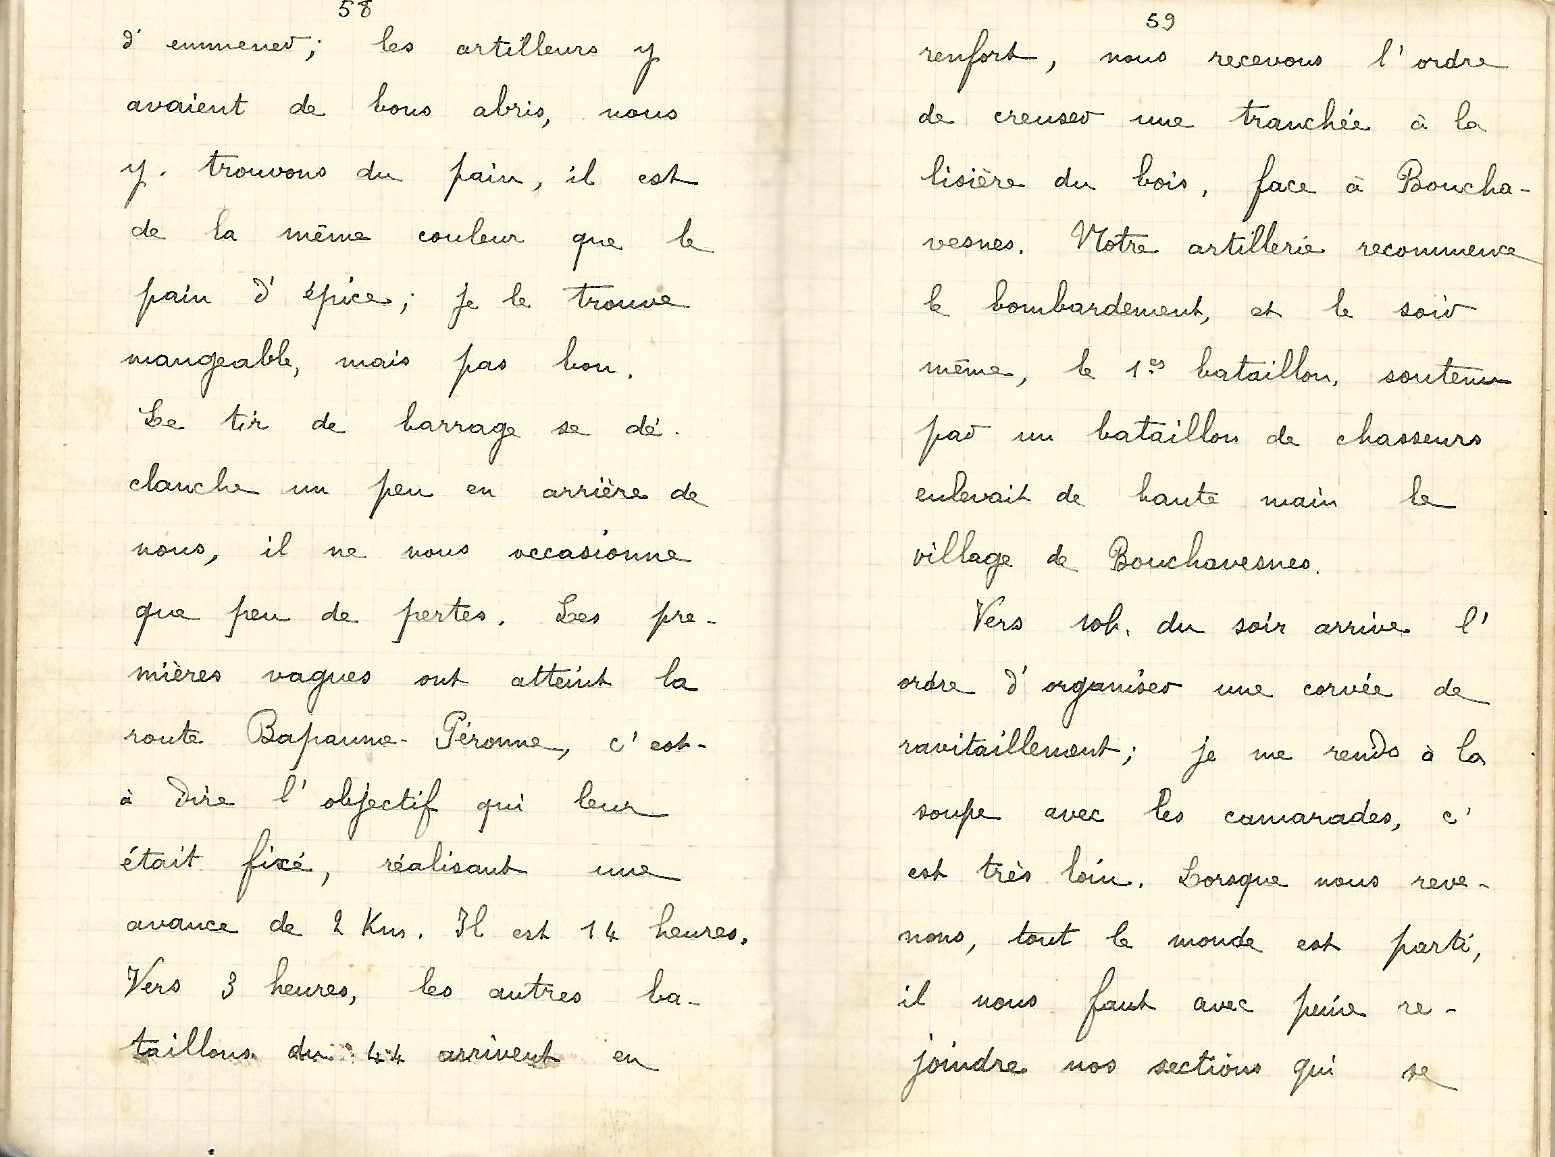 58
d' emmener; les artilleurs y
avaient de bons abris, nous
y. trouvons du pain, il est
de la même couleur que le
pain d' épice; je le trouve
mangeable, mais pas bon.
Le tir de barrage se dé-
clanche un peu en arrière de
nous, il ne nous occasionne
que peu de pertes. Les pre-
mières vagues ont atteint la
route Bapaume-Péronne, c'est-
à dire l' objectif qui leur
était fixé, réalisant une
avance de 2 Km. Il est 14 heures.
Vers 3 heures, les autres ba-
taillons du 44 arrivent en
59
renfort, nous recevons l' ordre
de creuser une tranchée à la
lisière du bois, face à Boucha-
vesnes. Notre artillerie recommence
le bombardement, et le soir
même, le 1er bataillon, soutenu
par un bataillon de chasseurs
enlevait de haute main le
village de Bouchavesnes.
Vers 10h. du soir arrive l'
ordre d' organiser une corvée de
ravitaillement; je me rends à la
soupe avec les camarades, c'
est très loin. Lorsque nous reve-
nons, tout le monde est parti,
il nous faut avec peine re-
joindre nos sections qui se